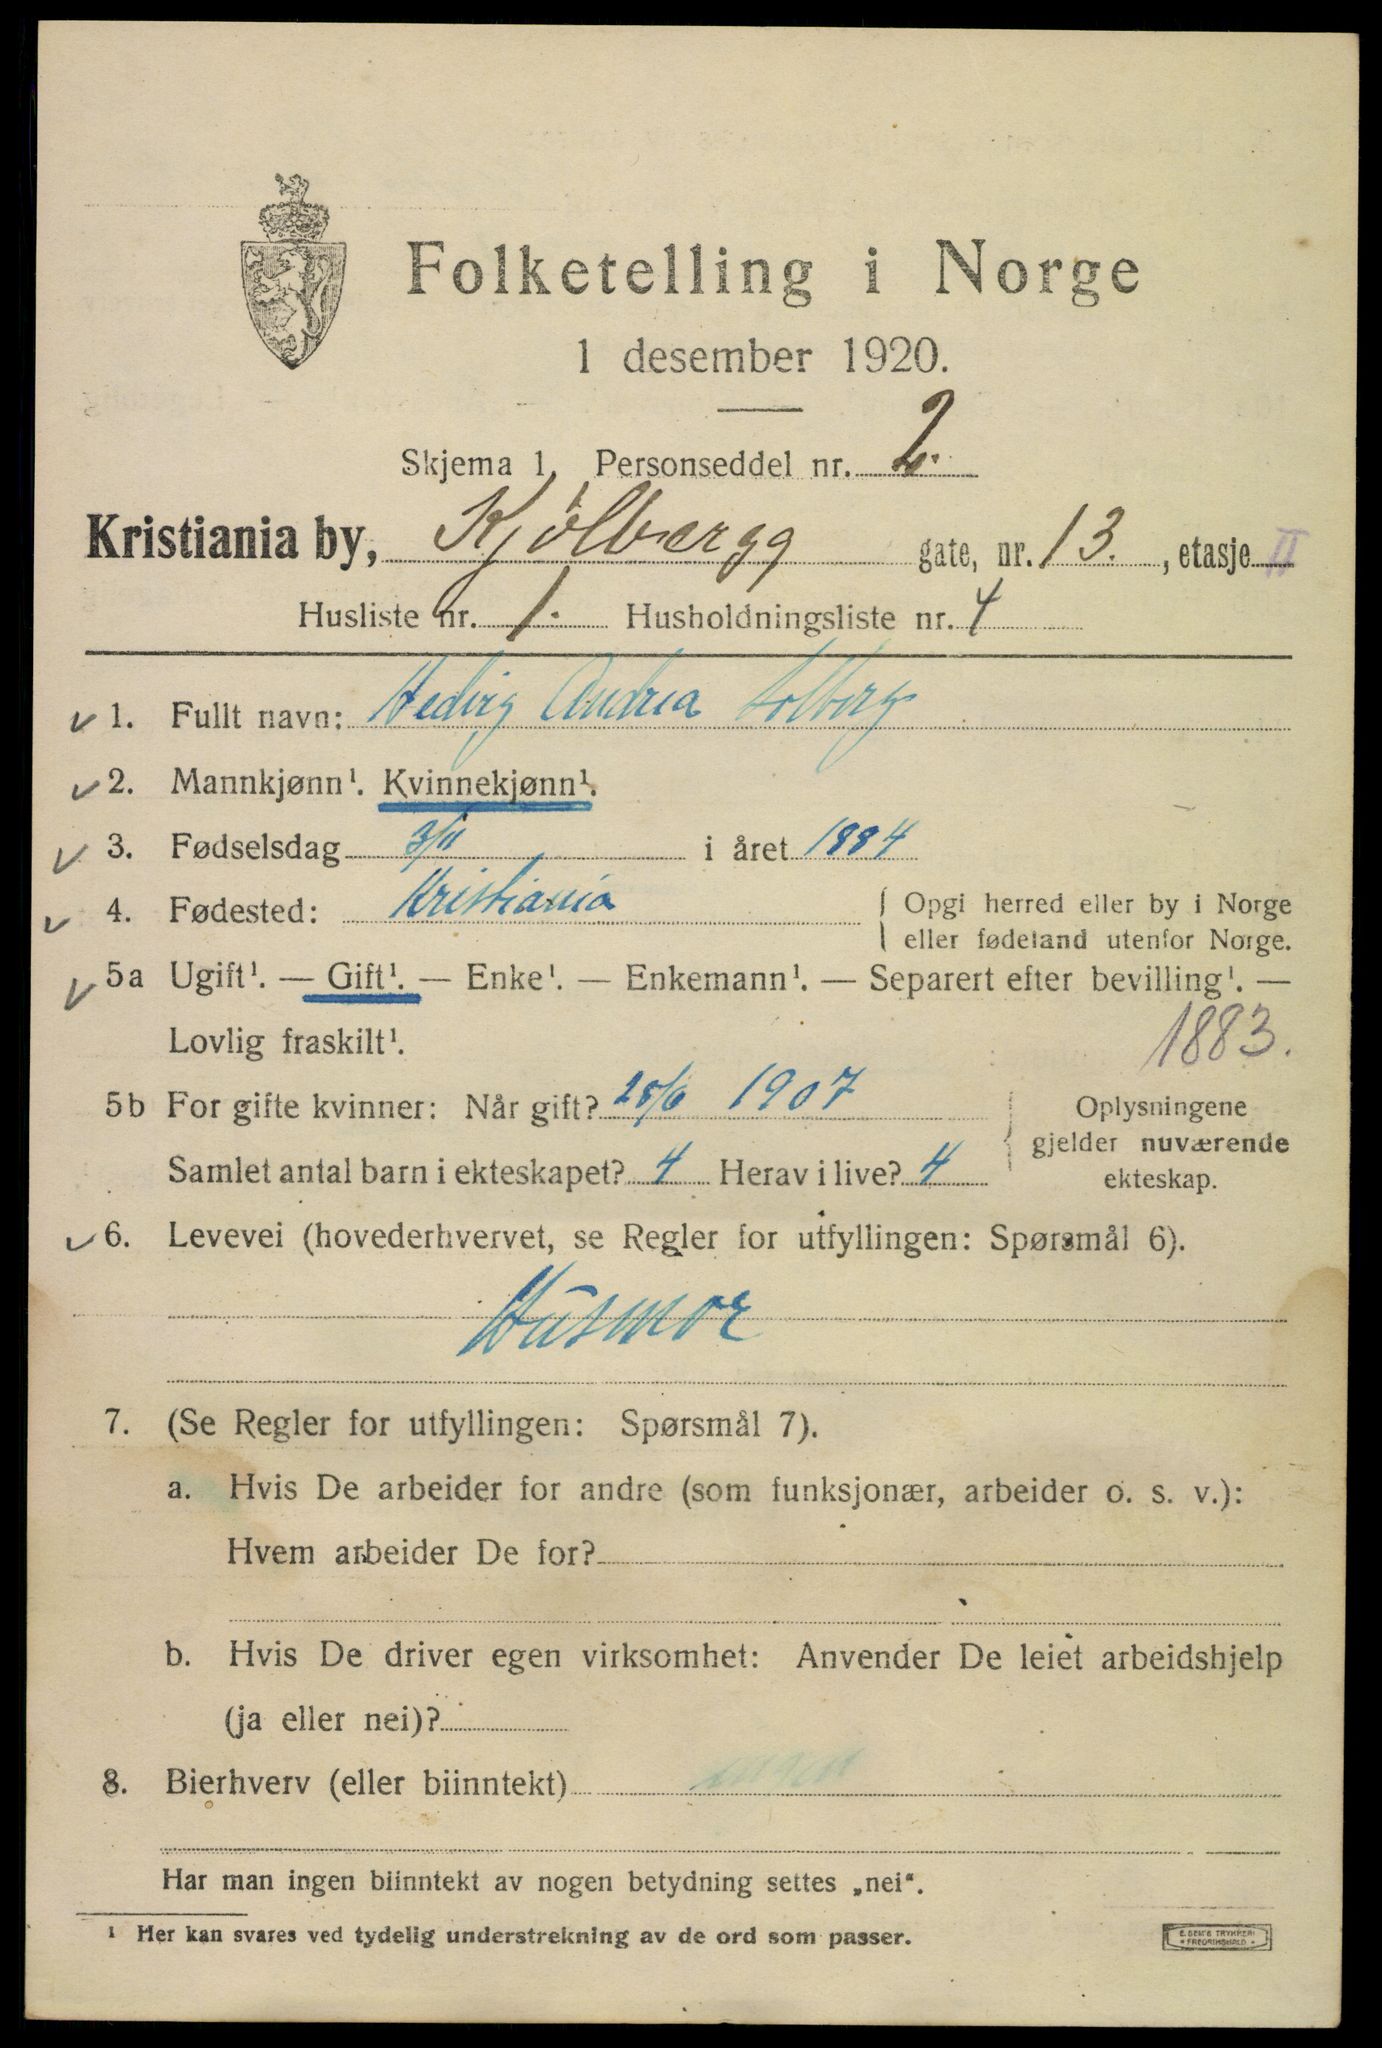 Folketelling i Norge
1 desember 1920.
Skjema 1. Personseddel nr. 2.
Kristiania by, Kjølbergg gate, nr. 13., etasje II
Husliste nr. 1. Husholdningsliste nr. 4
1. Fullt navn: Hedvig Andrea Solberg
2. Mannkjønn¹. Kvinnekjønn¹.
3. Fødselsdag 3/11 i året 1884
4. Fødested: Kristiania { Opgi herred eller by i Norge
eller fødeland utenfor Norge.
5a Ugift¹. — Gift¹. — Enke¹. — Enkemann¹. — Separert efter bevilling¹. —
Lovlig fraskilt¹. 1883.
5b For gifte kvinner: Når gift? 28/6 1907
Samlet antal barn i ekteskapet? 4 Herav i live? 4
{ Oplysningene
gjelder nuværende
ekteskap.
6. Levevei (hovederhvervet, se Regler for utfyllingen: Spørsmål 6).
Husmor
7. (Se Regler for utfyllingen: Spørsmål 7).
a. Hvis De arbeider for andre (som funksjonær, arbeider o. s. v.):
Hvem arbeider De for?
b. Hvis De driver egen virksomhet: Anvender De leiet arbeidshjelp
(ja eller nei)?
8. Bierhverv (eller biinntekt)
Har man ingen biinntekt av nogen betydning settes „nei“.
¹ Her kan svares ved tydelig understrekning av de ord som passer.
E. SEM'S TRYKKERI
* FREDRIKSHALD *